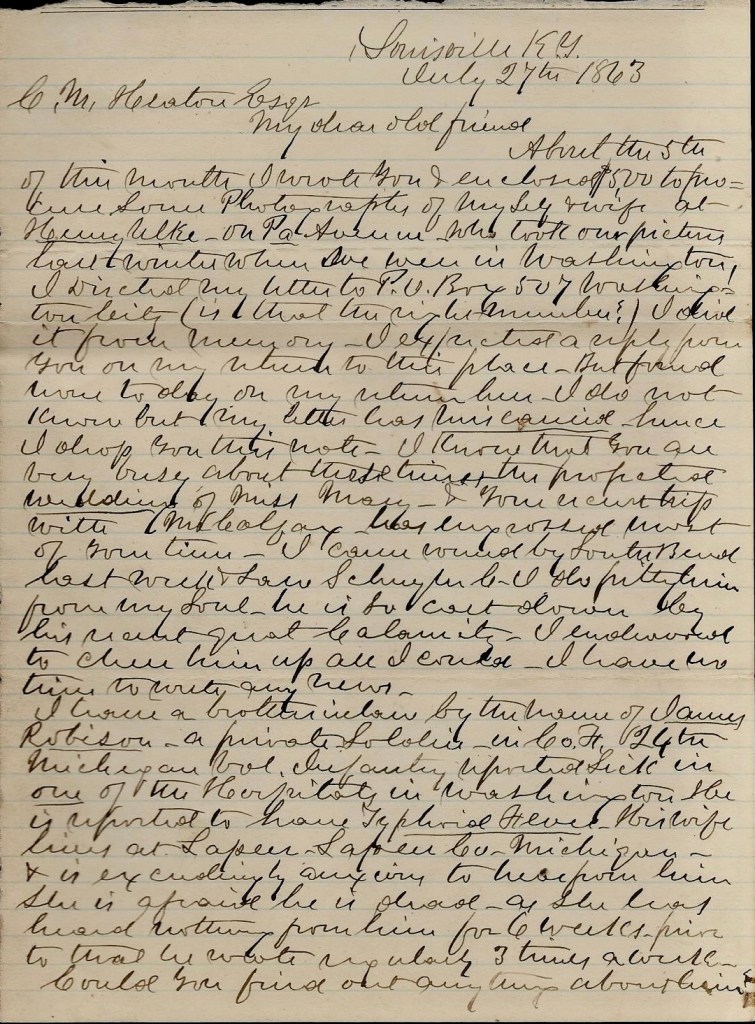 Louisville KY.
July 27th 1863
C. M. Heaton Esqr
My dear old friend
About the 5th
of this month I wrote you & enclosed $500 to pro=
cure some Photographs of myself & wife at
Henry Ulke - on Pa Avenue - who took our picture
last winter when we were in Washington,
I directed my letter to P.O. Box 507 Washing=
ton City (is that the right number?) I did
it from memory - I expected a reply from
you on my return to this place - But found
none to day on my return here - I do not
know but my letter has miscarried - hence
I drop you this note - I know that you are
very busy about these times, the projected
wedding of Miss Mary - & your recent trip
with Mr Colfax - has engrossed most
of your time - I came round by South Bend
last week & saw Schuyler C - I do pitty him
from my soul - he is so cast down by
his recent great calamity - I endeavored
to cheer him up all I could - I have no
time to write any news -
I have a brother in law by the name of James
Robison - a private Soldier - in Co. H, 24th
Michigan Vol. Infantry reported sick in
one of the Hospitals in Washington He
is reported to have Typhoid Fever - His wife
lives at Lapeer - Lapeer Co - Michigan -
& is exceedingly anxious to hear from him
She is afraid he is dead - as she has
heard nothing from him for 6 weeks - prior
to that he wrote regularly 3 times a week -
Could you find out anything about him